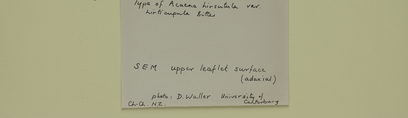 Type of Acaena hirsutula var.
hirticupula Bitter
SEM upper leaflet surface
(adaxial)
photo: D. Waller University of
Ch-Ch N.Z. Canterbury